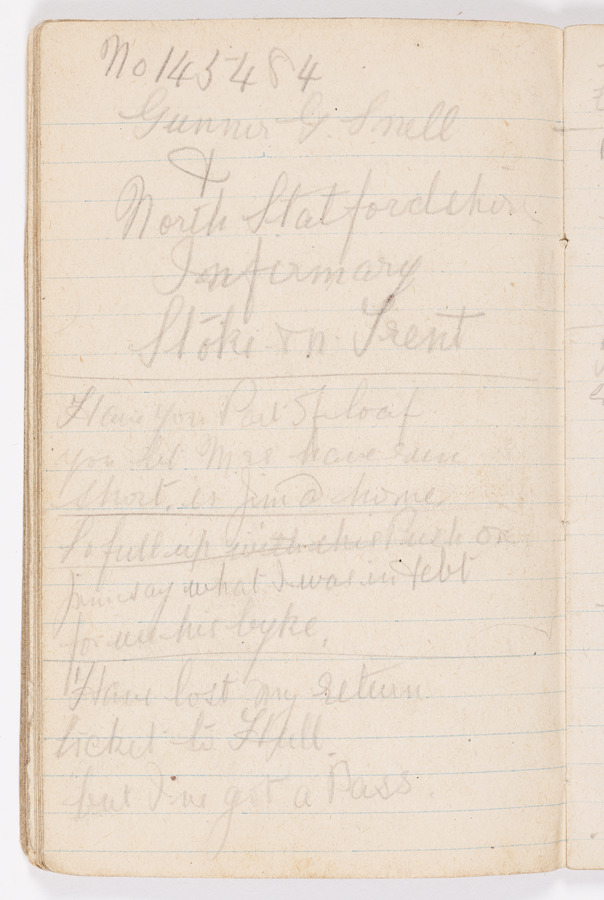 No 145484
Gunner G. Snell
North Statfordshire
Infirmary
Stoke on Trent
Have you Part of loaf
you let Mrs have run
short, is Jim @ home
So full up with this Push on
Jim say what I was in debt
for his byke,
Have lost my return
ticket to Hull.
but I've got a Pass.